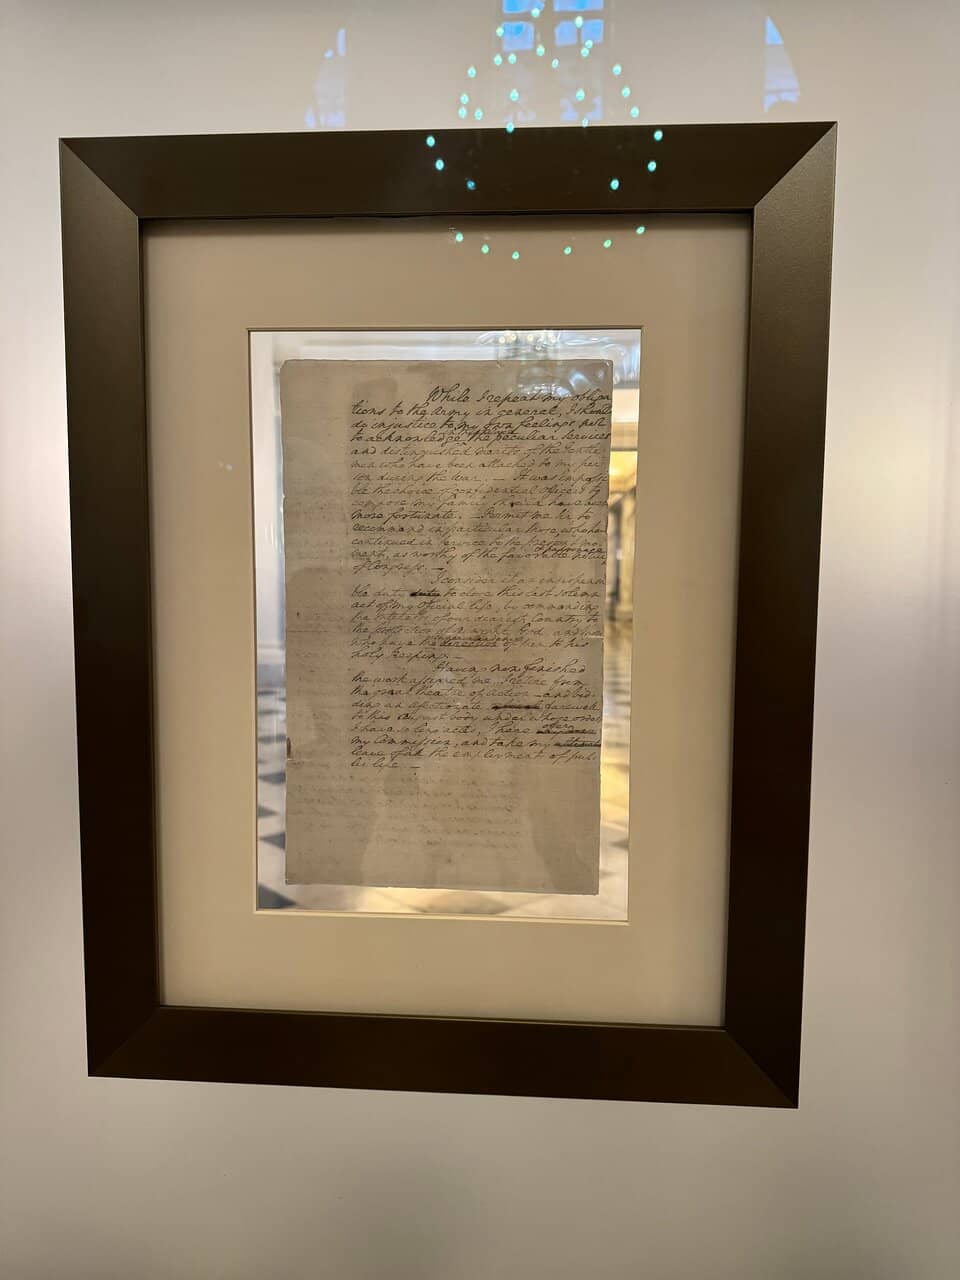 While I repeat my obliga
tions to the Army in general, I should
do injustice to my own feelings not
to acknowledge in this place the peculiar services
and distinguished merits of the Gentle
men who have been attached to my per
son during the war. — It was impossi
ble the choice of confidential officers to
compose my family should have been
more fortunate. — Permit me Sir, to
recommend in particular those, who have
continued in service to the present mo
ment, as worthy of the favorable notice & patronage
of Congress. —
I consider it an indispensa
ble duty duty to close this last solemn
act of my official life, by commending
the interests of our dearest Country to
the protection of Almighty God, and those
who have the direction superintendence of them to his
holy keeping. —
Having now finished
the work assigned me, I retire from
the great theatre of action — and bid
ding an affectionate farewell
to this august body under whose orders
I have so long acted, I here offer
my Commission, and take my
leave of all the employments of pub
lic life. —